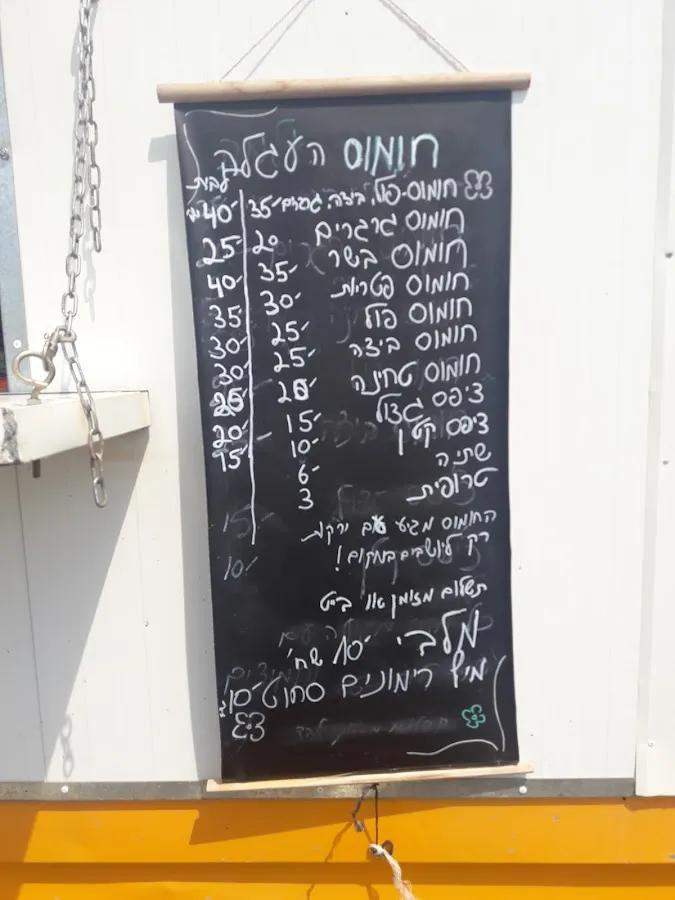 חומוס העגלה
לבית
חומוס-פול, ביצה, גרגרים 35 40
חומוס גרגרים 20 25
חומוס בשר 35 40
חומוס פטריות 30 35
חומוס פול 25 30
חומוס ביצה 25 30
חומוס טחינה 20 25
ציפס גדול 15 20
ציפס קטן 10 15
שתיה 6
טרופית 3
החומוס מגיע עם ירקות
רק ליושבים במקום!
תשלום מזומן או ביט
מלבי 10 שח'
מיץ רימונים סחוט 10